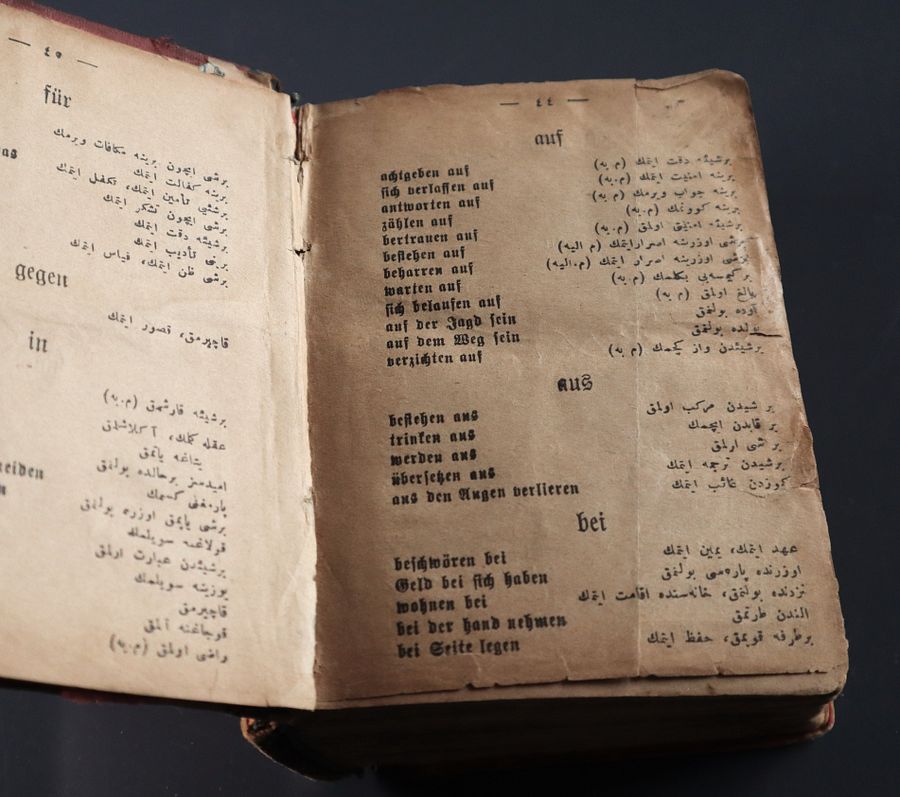 — ٤٤ —
auf
achtgeben auf برشیئه دقت ایتمك (م.به)
sich verlassen auf برینه امنیت ایتمك (م.به)
antworten auf برینه جواب ویرمك (م به)
zählen auf برینه كوونمك (م.به)
vertrauen auf برشیئه امنیتی اولمق (م.به)
bestehen auf برشی اوزرینه اصرارایتمك (م الیه)
beharren auf برشی اوزرینه اصرار ایتمك (م.الیه)
warten auf بركیمسه‌یی بكلمك (م به)
sich belaufen auf بالغ اولمق (م به)
auf der Jagd sein آوده بولنمق
auf dem Weg sein یولده بولنمق
verzichten auf برشیئدن واز كچمك (م به)
aus
bestehen aus بر شیدن مركب اولمق
trinken aus بر قابدن ایچمك
werden aus بر شی اولمق
übersetzen aus برشیدن ترجمه ایتمك
aus den Augen verlieren كوزدن غائب ایتمك
bei
beschwören bei عهد ایتمك، یمین ایتمك
Geld bei sich haben اوزرنده پاره‌سی بولنمق
wohnen bei نزدنده بولنمق، خانه‌سنده اقامت ایتمك
bei der Hand nehmen الندن طوتمق
bei Seite legen برطرفه قویمق، حفظ ایتمك
— ٤٥ —
für
برشی ایچون برینه مكافات ویرمك
برینه كفالت ایتمك
برشیئی تأمین ایتمك، تكفل ایتمك
برشی ایچون تشكر ایتمك
برشیئه دقت ایتمك
برینی تأدیب ایتمك
برشی ظن ایتمك، قیاس ایتمك
gegen
قاچیرمق، قصور ایتمك
in
برشیئه قارشمق (م.به)
عقله كلمك، آكلاشلمق
یتاغه یاتمق
امیدسز برحالده بولنمق
پارمغنی كسمك
برشی یاپمق اوزره بولنمق
قولاغنه سویلمك
برشیئدن عبارت اولمق
یوزینه سویلمك
قاچیرمق
قوجاغنه آلمق
راضی اولمق (م.به)